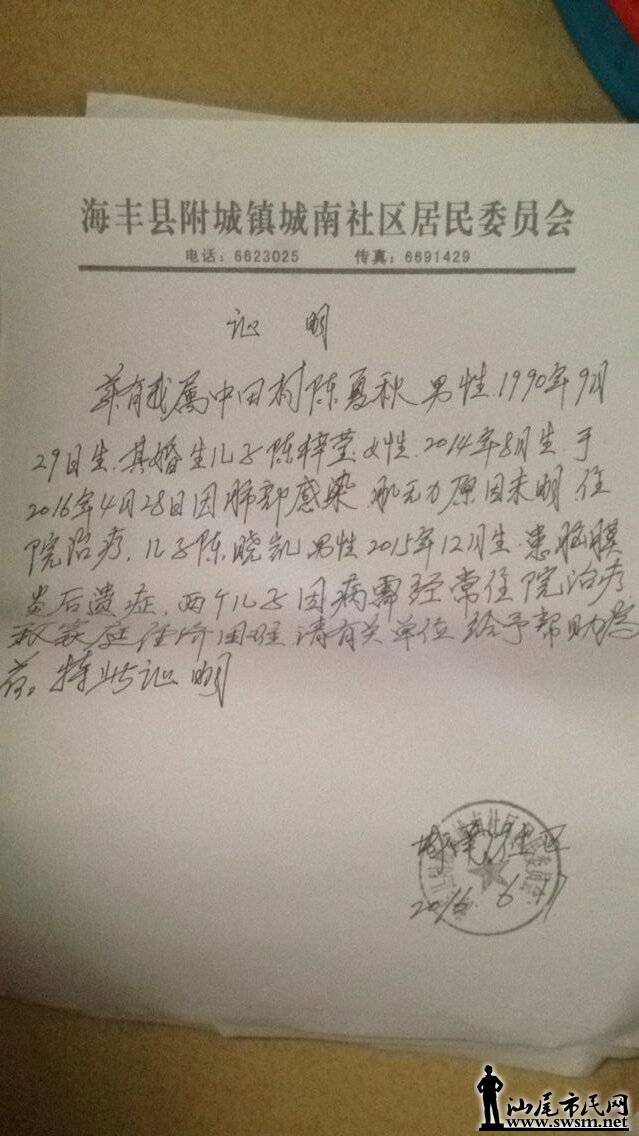 海丰县附城镇城南社区居民委员会
电话：6623025 传真：6691429
证 明
兹有我属中田村陈夏秋男性.1990年9月
29日生.其婚生儿子陈梓莹.女性.2014年8月生.于
2016年4月28日因肺部感染.肌无力原因未明.住
院治疗.儿子陈晓凯男性2015年12月生.患脑膜
炎后遗症.两个儿子因病需经常住院治疗.
致家庭经济困难.请有关单位给予帮助为
荷。特此证明
城南社区
2016.6.1
汕尾市民网
www.swsm.net